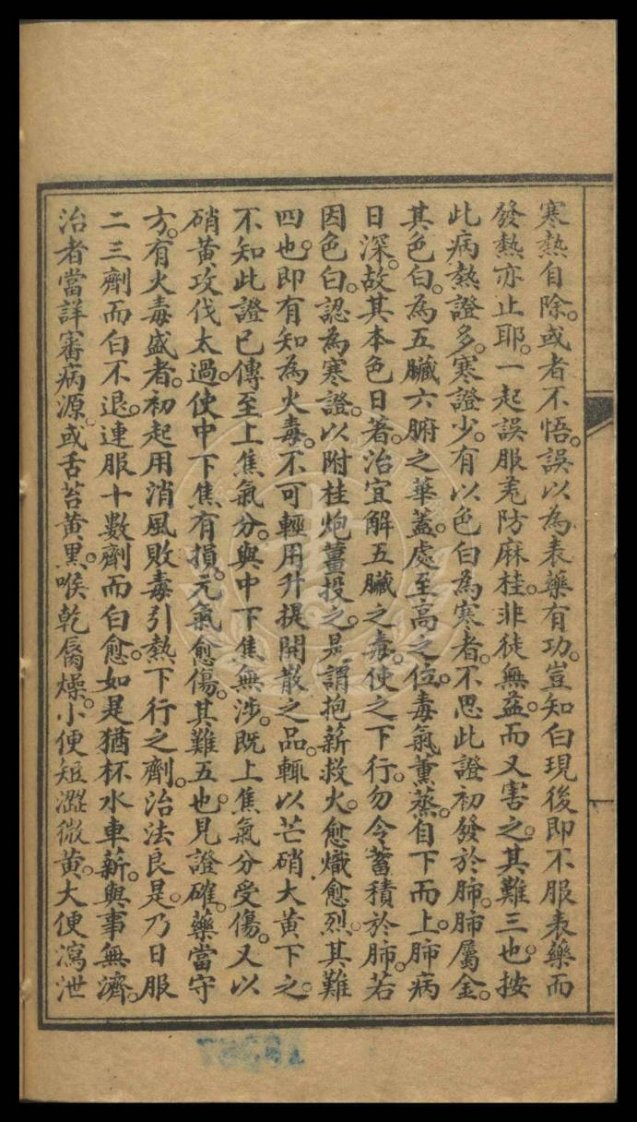 寒熱自除。或者不悟。誤以為表藥有功。豈知白現後即不服表藥而
發熱亦止耶。一起誤服羌防麻桂。非徒無益。而又害之。其難三也。按
此病熱證多。寒證少。有以色白為寒者。不思此證初發於肺。肺屬金。
其色白。為五臟六腑之華蓋。處至高之位。毒氣熏蒸。自下而上。肺病
日深。故其本色日著。治宜解五臟之毒。使之下行。勿令蓄積於肺。若
因色白。認為寒證。以附桂炮薑投之。是謂抱薪救火。愈熾愈烈。其難
四也。即有知為火毒。不可輕用升提開散之品。輒以芒硝大黃下之。
不知此證已傳至上焦氣分。與中下焦無涉。既上焦氣分受傷。又以
硝黃攻伐太過。使中下焦有損。元氣愈傷。其難五也。見證確。藥當守
方。有火毒盛者。初起用消風敗毒引熱下行之劑。治法良是。乃日服
二三劑而白不退。連服十數劑而白愈。如是猶杯水車薪。與事無濟。
治者當詳審病源。或舌苔黃黑。喉乾脣燥。小便短澀微黃。大便瀉泄